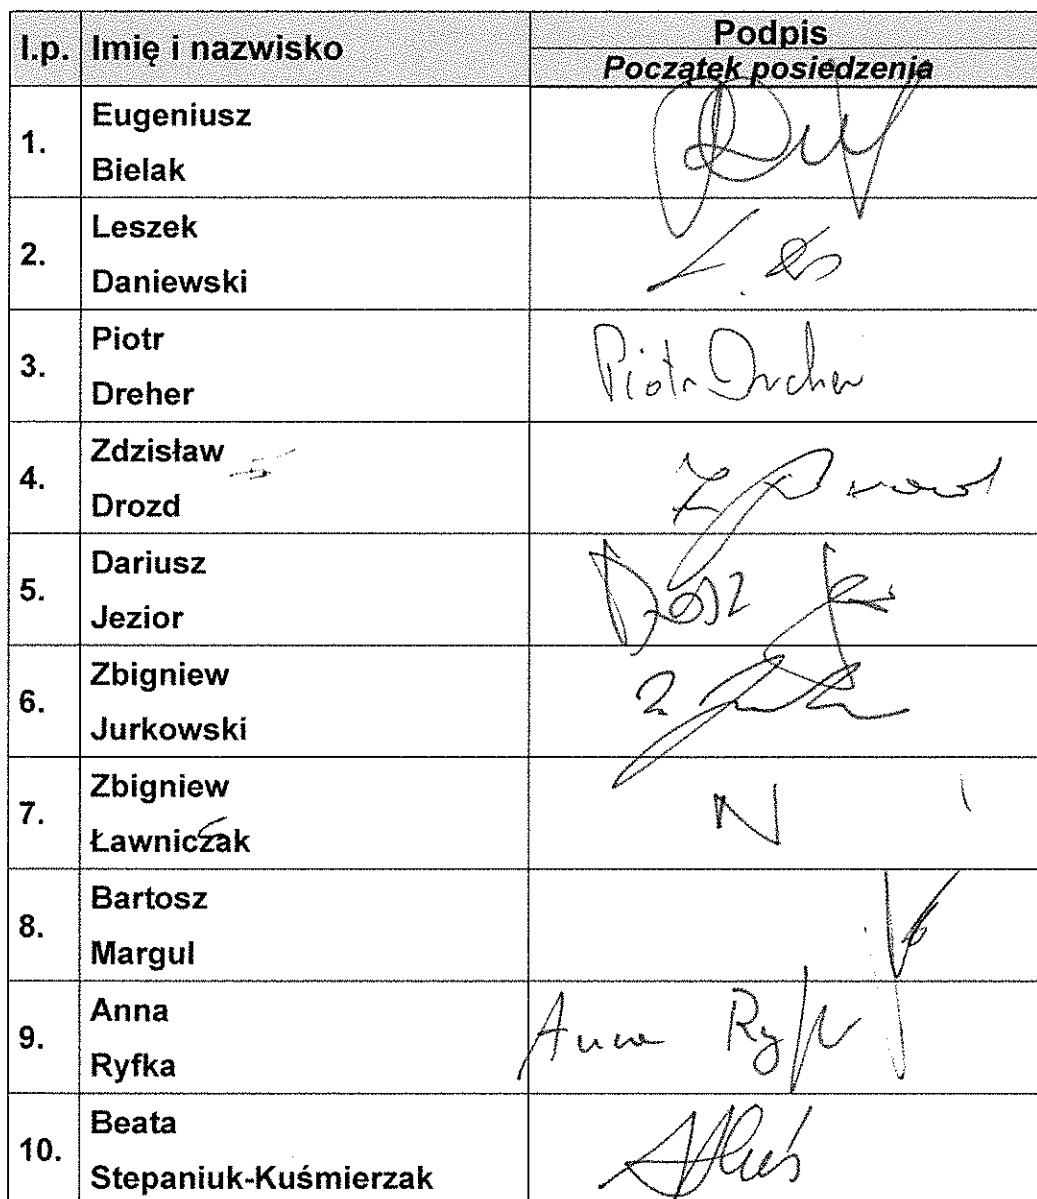 l.p. Imię i nazwisko Podpis
Początek posiedzenia
1. Eugeniusz
Bielak
2. Leszek
Daniewski
3. Piotr
Dreher
Piotr Dreher
4. Zdzisław
Drozd
5. Dariusz
Jezior
6. Zbigniew
Jurkowski
7. Zbigniew
Ławniczak
N
8. Bartosz
Margul
9. Anna
Ryfka
Anna Ryfka
10. Beata
Stepaniuk-Kuśmierzak